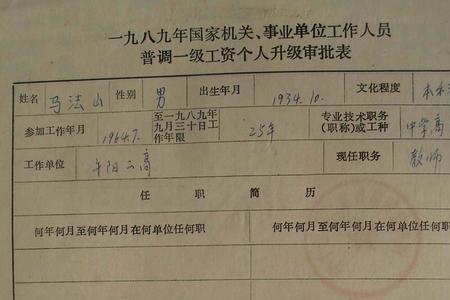 一九八九年国家机关、事业单位工作人员
普调一级工资个人升级审批表
姓名 马法山 性别 男 出生年月 1934.10. 文化程度 本科
参加工作年月 1964.7. 至一九八九年九月三十日工作年限 25年 专业技术职务(职称)或工种 中学高
工作单位 二高 现任职务 教师
任职简历
何年何月至何年何月在何单位任何职 何年何月至何年何月在何单位任何职